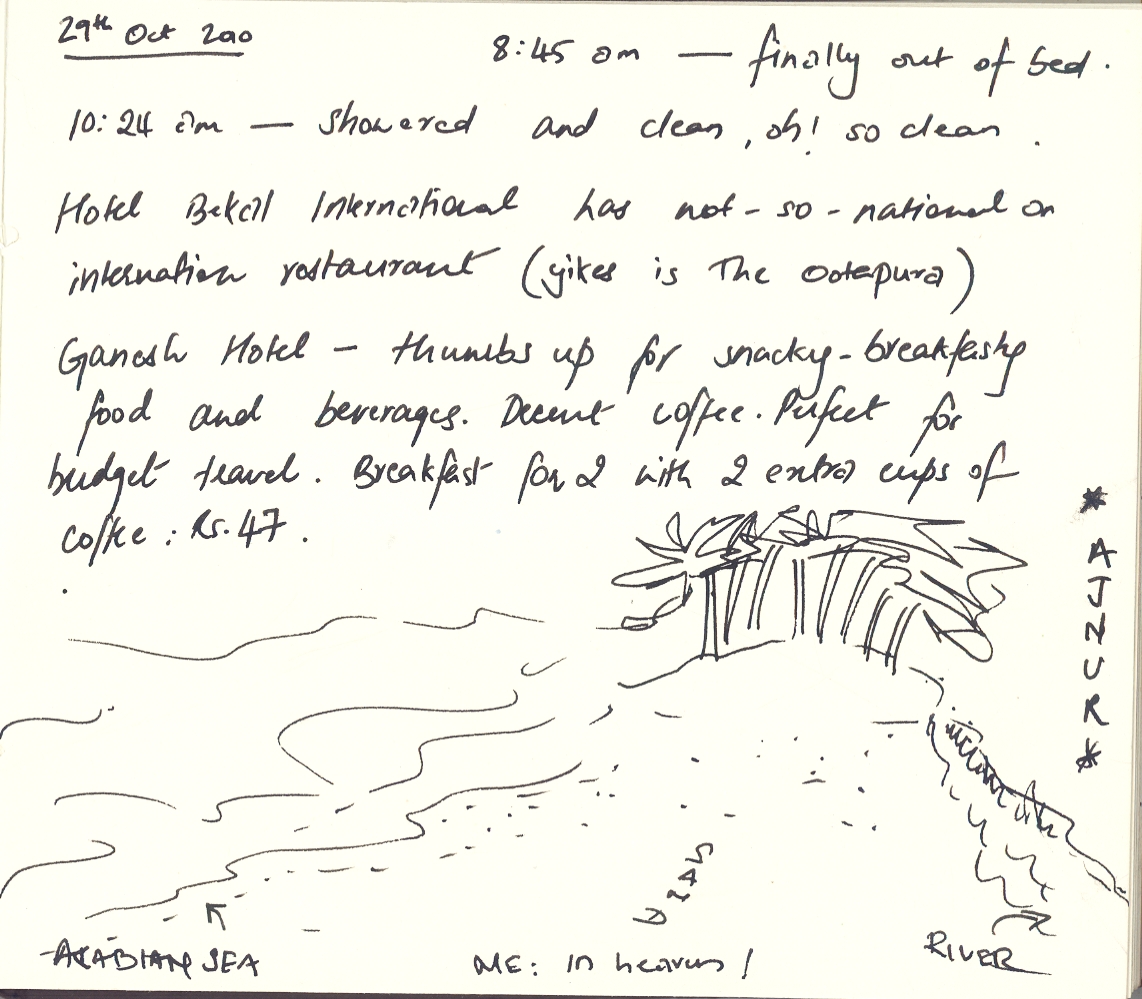 29th Oct 200
8:45 am — finally out of bed.
10:24 am — showered and clean, oh! so clean.
Hotel Bekal International has not-so-national or
internation restaurant (yikes is The Ootapura)
Ganesh Hotel – thumbs up for snacky-breakfasty
food and beverages. Decent coffee. Perfect for
budget travel. Breakfast for 2 with 2 extra cups of
coffee : Rs. 47.
* AJNUR *
SAND
ARABIAN SEA
ME: in heaven!
RIVER